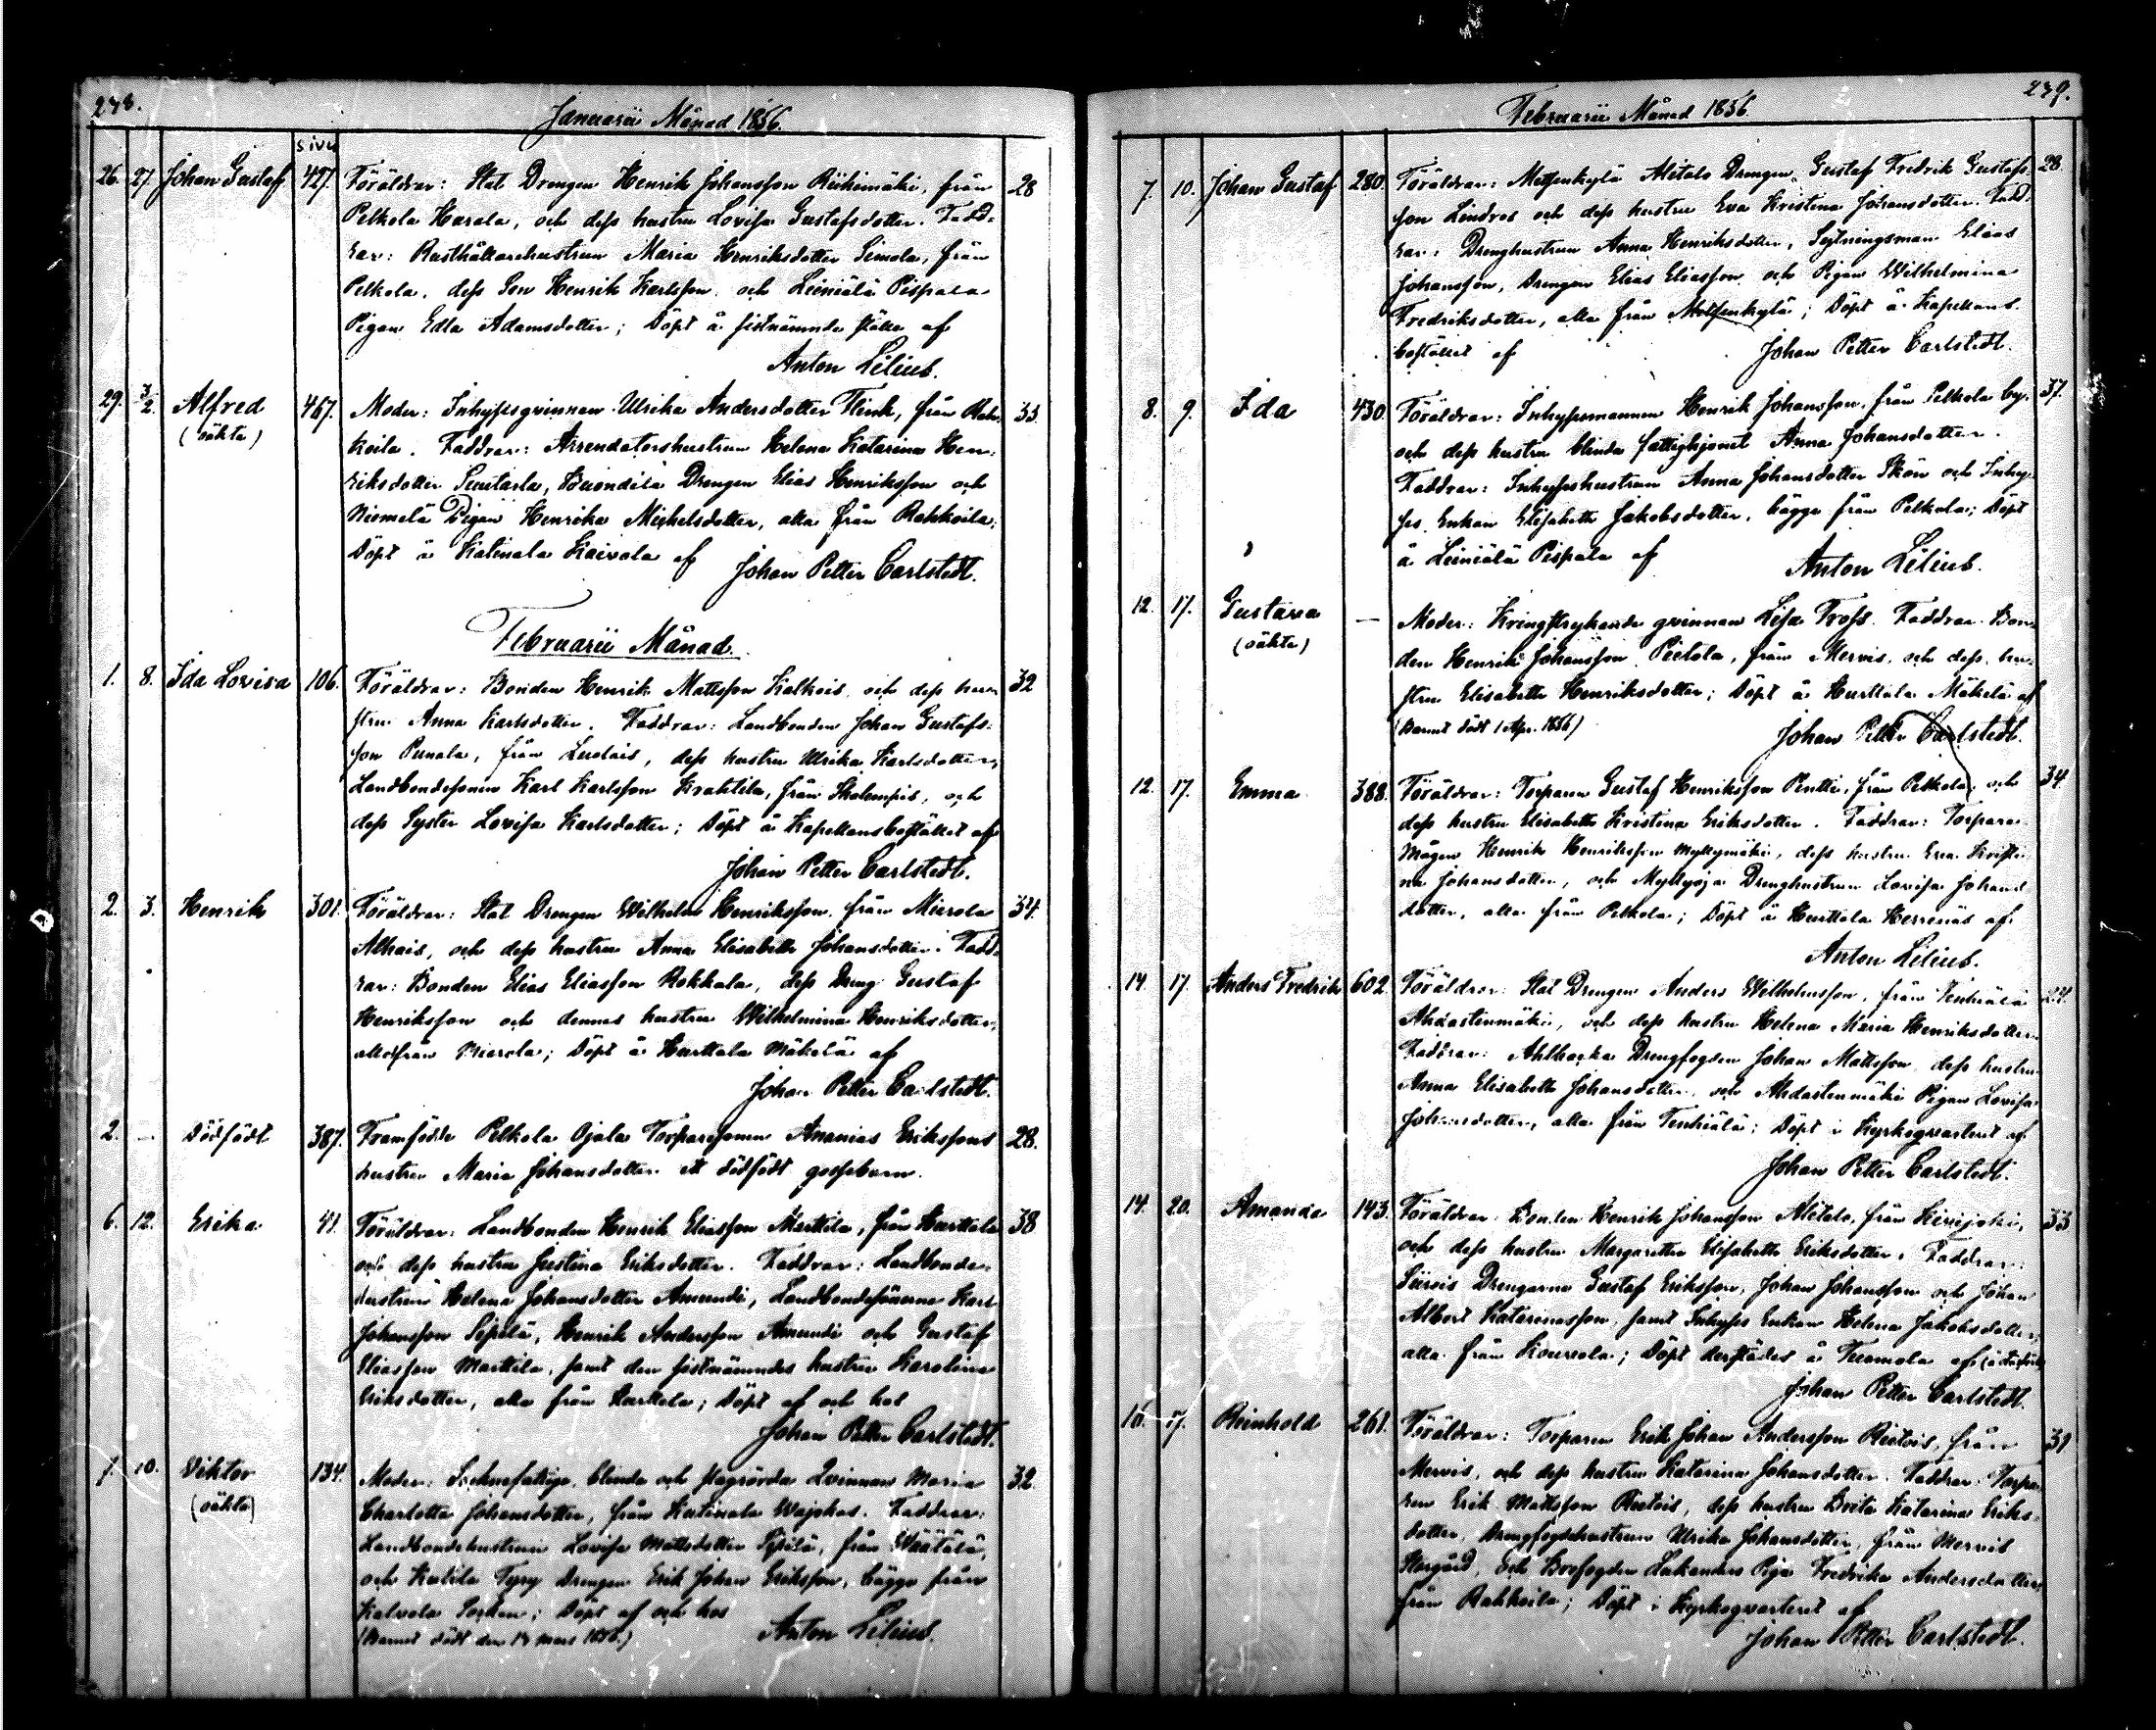 278.
Januarii Månad 1856.
sivu
26. 27. Johan Gustaf 427. Föräldrar: Stat Drengen Henrik Johansson Riihimäki, från 28
Pelkola Harala, och dess hustru Lovisa Gustafsdotter. Fadd-
rar: Rusthållarehustrun Maria Henriksdotter Simola, från
Pelkola, dess Son Henrik Karlsson och Leiniälä Pispala
Pigan Edla Adamsdotter; Döpt å sistnämnda ställe af
Anton Lilius.
29. 3/2. Alfred 467. Moder: Inhysesqvinnan Ulrika Andersdotter Flink, från Rah- 33.
(oäkta) koila. Faddrar: Arrendatorshustrun Helena Katarina Hen-
riksdotter Drengen Elias Henriksson och
Niemelä Pigan Henrika Michelsdotter, alla från Rahkoila;
Döpt å Katinala Kaivola af Johan Petter Carlstedt.
Februarii Månad.
1. 8. Ida Lovisa 106. Föräldrar: Bonden Henrik Mattsson Kalkois och dess hu- 32
stru Anna Karlsdotter. Faddrar: Landbonden Johan Gustafs-
son Punala, från Luolais, dess hustru Ulrika Karlsdotter,
Landbondesonen Karl Karlsson Krahtila, från och
dess Syster Lovisa Karlsdotter; Döpt å Kapellansbostället af
Johan Petter Carlstedt.
2. 3. Henrik 301. Föräldrar: Stat Drengen Wilhelm Henriksson från Mierola 34.
Alhais, och dess hustru Anna Elisabeth Johansdotter. Fadd-
rar: Bonden Elias Eliasson Rokkala, dess Dreng Gustaf
Henriksson och dennes hustru Wilhelmina Henriksdotter,
alla från Mierola; Döpt å Hurttala Mäkelä af
Johan Petter Carlstedt.
2. — Dödfödt 387. Framfödde Pelkola Ojala Torparesonen Ananias Erikssons 28.
hustru Maria Johansdotter ett dödfödt gossebarn.
6. 12. Erika 41. Föräldrar: Landbonden Henrik Eliasson Marttila, från Hurttala 38
och dess hustru Justina Eriksdotter. Faddrar: Landbonde-
hustrun Helena Johansdotter Amundi, Landbondesönerna Karl
Johansson Sipilä, Henrik Andersson Amundi och Gustaf
Eliasson Marttila, samt den sistnämndes hustru Karolina
Eriksdotter, alla från Hurttala; Döpt af och hos
Johan Petter Carlstedt.
7. 10. Viktor 134. Moder: Socknefattiga, blinda och Qvinnan Maria 32.
(oäkta) Charlotta Johansdotter, från Katinala Wajokas. Faddrar:
Landbondehustrun Lovisa Mattsdotter från
och Drengen Erik Johan Eriksson, bägge från
Kalvola Socken; Döpt af och hos
(Barnet dödt den Mars 1856.) Anton Lilius.
279.
Februarii Månad 1856.
7. 10. Johan Gustaf 280. Föräldrar: Metsenkylä Alitalo Drengen Gustaf Fredrik Gustafs- 28.
son Lindros och dess hustru Eva Kristina Johansdotter. Fadd-
rar: Drenghustrun Anna Henriksdotter, Sejtningsman Elias
Johansson, Drengen Elias Eliasson och Pigan Wilhelmina
Fredriksdotter, alla från Metsenkylä; Döpt å Kapellans-
bostället af Johan Petter Carlstedt.
8. 9. Ida 430. Föräldrar: Inhysesmannen Henrik Johansson, från Pelkola by, 37.
och dess hustru blinda fattighjonet Anna Johansdotter.
Faddrar: Inhyseshustrun Anna Johansdotter Skön och Inhy-
ses Enkan Elisabeth Jakobsdotter, bägge från Pelkola; Döpt
å Leiniälä Pispala af Anton Lilius.
12. 17. Gustava — Moder: Kringstrykande qvinnan Lisa Tross. Faddrar: Bon-
(oäkta) den Henrik Johansson Pietola, från Mervis, och dess hu-
stru Elisabeth Henriksdotter; Döpt å Hurttala Mäkelä af
(Barnet dödt 1 Apr. 1856) Johan Petter Carlstedt.
12. 17. Emma 388. Föräldrar: Torparen Gustaf Henriksson Pentti, från Pelkola, och 34.
dess hustru Elisabeth Kristina Eriksdotter. Faddrar: Torpare-
Mågen Henrik Henriksson Myllymäki, dess hustru Eva Kristi-
na Johansdotter, och Myllyoja Drenghustrun Lovisa Johans-
dotter, alla från Pelkola; Döpt å Hurttala Herrenäs af
Anton Lilius.
14. 17. Anders Fredrik 602. Föräldrar: Stat Drengen Anders Wilhelmsson, från Tenhiälä 24.
Ahdastenmäki, och dess hustru Helena Maria Henriksdotter.
Faddrar: Ahlbacka Drengfogden Johan Mattsson, dess hustru
Anna Elisabeth Johansdotter och Ahdastenmäki Pigan Lovisa
Johansdotter, alla från Tenhiälä; Döpt i Kyrkoqvarteret af
Johan Petter Carlstedt.
14. 20. Amanda 143. Föräldrar: Bonden Henrik Johansson Alitalo, från Kirrijoki, 33
och dess hustru Margaretha Elisabeth Eriksdotter. Faddrar:
Siirvis Drengarne Gustaf Eriksson, Johan Johansson och Johan
Albert Katarinasson, samt Inhyses Enkan Helena Jakobsdotter,
alla från Kourola; Döpt derstädes å Tuomola af
Johan Petter Carlstedt.
15. 17. Reinhold 261. Föräldrar: Torparen Erik Johan Andersson Rietois, från 31
Mervis, och dess hustru Katarina Johansdotter. Faddrar: Torpa-
ren Erik Mattsson Rietois, dess hustru Brita Katarina Eriks-
dotter, Drengfogdehustrun Ulrika Johansdotter, från Mervis
Storgård, och Bonfogden Lukanders Piga Fredrika Andersdotter,
från Rahkoila; Döpt i Kyrkoqvarteret af
Johan Petter Carlstedt.